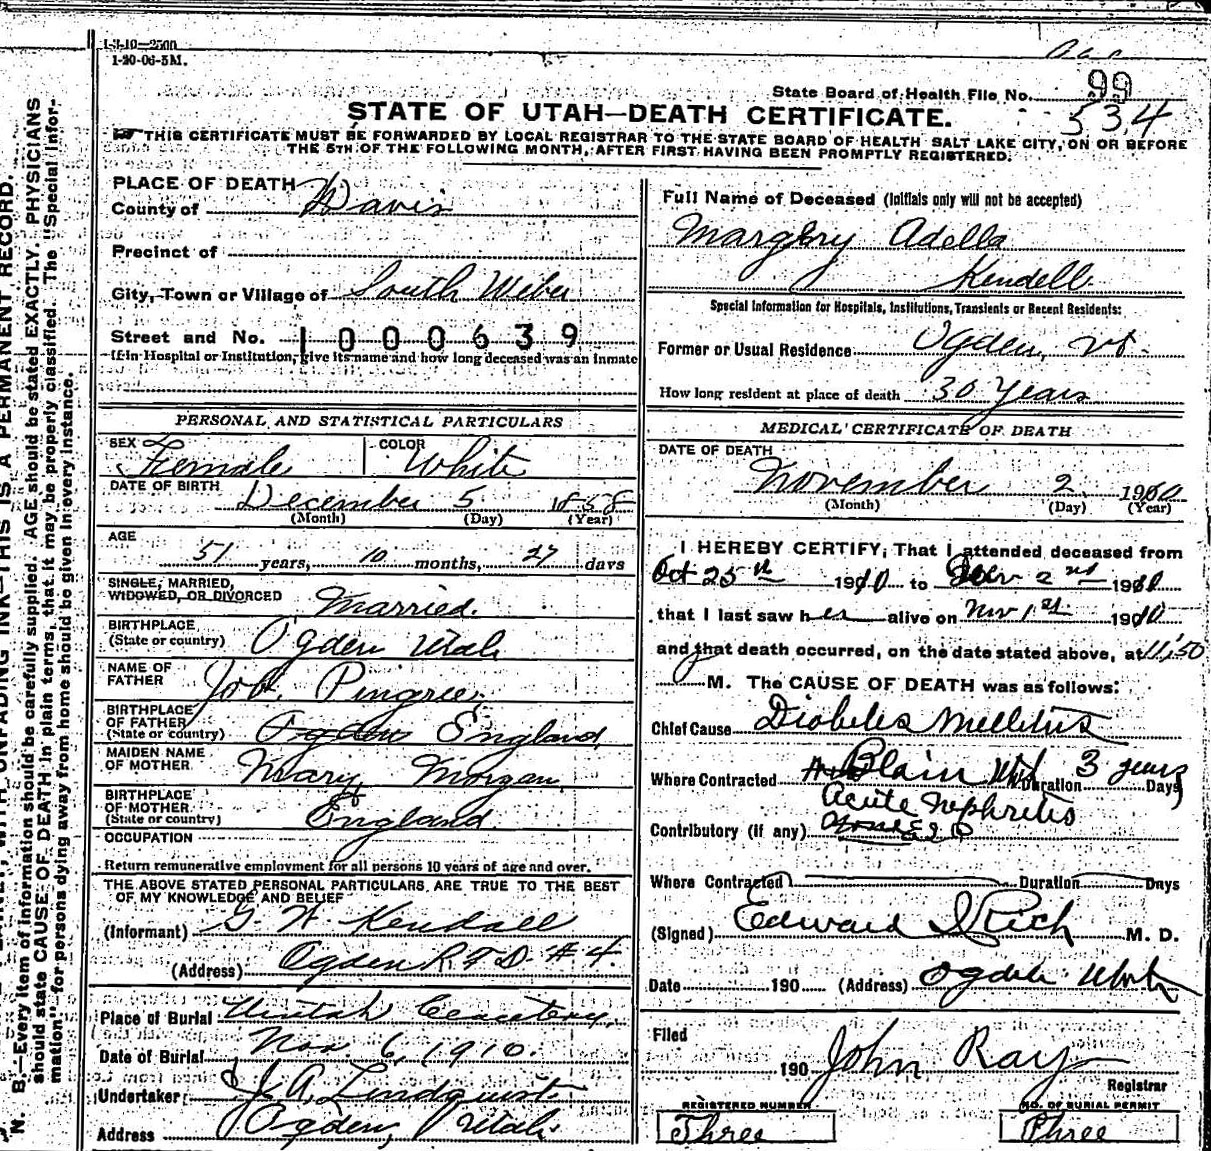 1-3-10—2500
1-20-06-5M.
State Board of Health File No. 99
534
STATE OF UTAH—DEATH CERTIFICATE.
THIS CERTIFICATE MUST BE FORWARDED BY LOCAL REGISTRAR TO THE STATE BOARD OF HEALTH SALT LAKE CITY, ON OR BEFORE
THE 5TH OF THE FOLLOWING MONTH, AFTER FIRST HAVING BEEN PROMPTLY REGISTERED.
N. B.—Every item of information should be carefully supplied. AGE should be stated EXACTLY. PHYSICIANS
should state CAUSE OF DEATH in plain terms, that it may be properly classified. The "Special Infor-
mation" for persons dying away from home should be given in every instance.
WITH UNFADING INK—THIS IS A PERMANENT RECORD.
PLACE OF DEATH
County of Davis
Precinct of
City, Town or Village of South Weber
Street and No. 1000639
If in Hospital or Institution, give its name and how long deceased was an inmate
PERSONAL AND STATISTICAL PARTICULARS
SEX Female COLOR White
DATE OF BIRTH December 5 1858
(Month) (Day) (Year)
AGE
51 years, 10 months, 27 days
SINGLE, MARRIED,
WIDOWED, OR DIVORCED Married.
BIRTHPLACE
(State or country) Ogden Utah
NAME OF
FATHER Job Pingree
BIRTHPLACE
OF FATHER
(State or country) Ogden England
MAIDEN NAME
OF MOTHER Mary Morgan
BIRTHPLACE
OF MOTHER
(State or country) England
OCCUPATION
Return remunerative employment for all persons 10 years of age and over.
THE ABOVE STATED PERSONAL PARTICULARS ARE TRUE TO THE BEST
OF MY KNOWLEDGE AND BELIEF
(Informant) G. W. Kendall
(Address) Ogden R.F.D. #4.
Place of Burial Uintah Cemetery.
Date of Burial Nov. 6, 1910.
Undertaker J. A. Lindquist
Address Ogden, Utah.
Full Name of Deceased (Initials only will not be accepted)
Margery Adella
Kendell
Special Information for Hospitals, Institutions, Transients or Recent Residents:
Former or Usual Residence Ogden, Ut.
How long resident at place of death 30 Years
MEDICAL CERTIFICATE OF DEATH
DATE OF DEATH
November 2, 1910
(Month) (Day) (Year)
I HEREBY CERTIFY, That I attended deceased from
Oct 25th 1910 to Nov 2nd 1910
that I last saw her alive on Nov 1st 1910
and that death occurred, on the date stated above, at 11,50
M. The CAUSE OF DEATH was as follows:
Chief Cause Diabetes Mellitus
Where Contracted Plain Duration 3 years Days
Acute Nephritis
Contributory (if any)
Where Contracted Duration Days
(Signed) Edward I Rich M. D.
Date 190 (Address) Ogden Utah
Filed
190 John Ray
Registrar
REGISTERED NUMBER NO. OF BURIAL PERMIT
Three Three